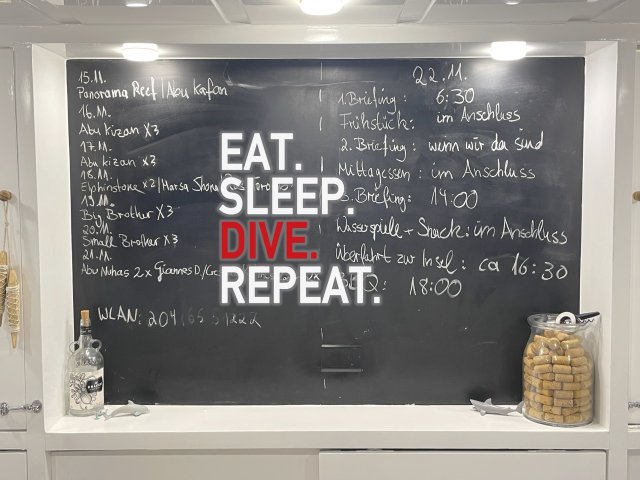 15.11.
Panorama Reef / Abu Kafan
16.11.
Abu Kizan x3
17.11.
Abu Kizan x3
18.11.
Elphinstone x2 / Marsa Shona
19.11.
Big Brother x3
20.11.
Small Brother x3
21.11.
Abu Nuhas 2x Giannes D /
WLAN:
22.11.
1. Briefing: 6:30
Frühstück: im Anschluss
2. Briefing: wenn wir da sind
Mittagessen: im Anschluss
3. Briefing: 14:00
Wasserspiele + Snack: im Anschluss
Überfahrt zur Insel: ca 16:30
18:00
EAT.
SLEEP.
DIVE.
REPEAT.